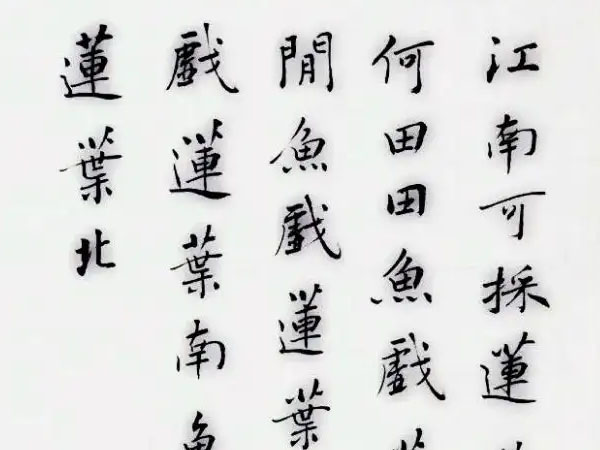 江南可採蓮
何田田魚戲
間魚戲蓮葉
戲蓮葉南魚
蓮葉北